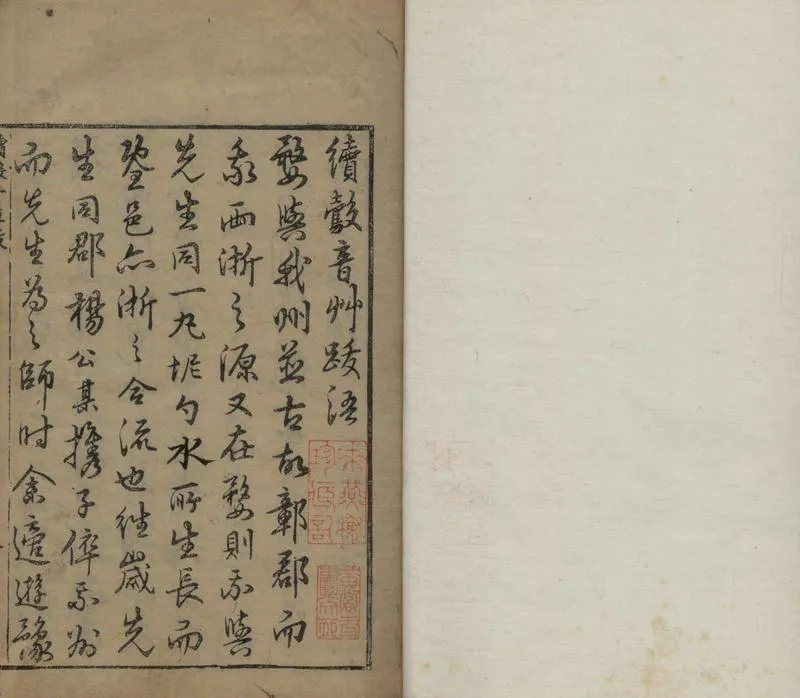 續鷇音艸跋語
婺與我州並古故鄣郡而
我西浙之源又在婺則我與
先生同一丸坭勺水所生長而
邑亦浙之合流也往歲先
生同郡楊公某攜子倅我州
而先生為之師時余適遊豫